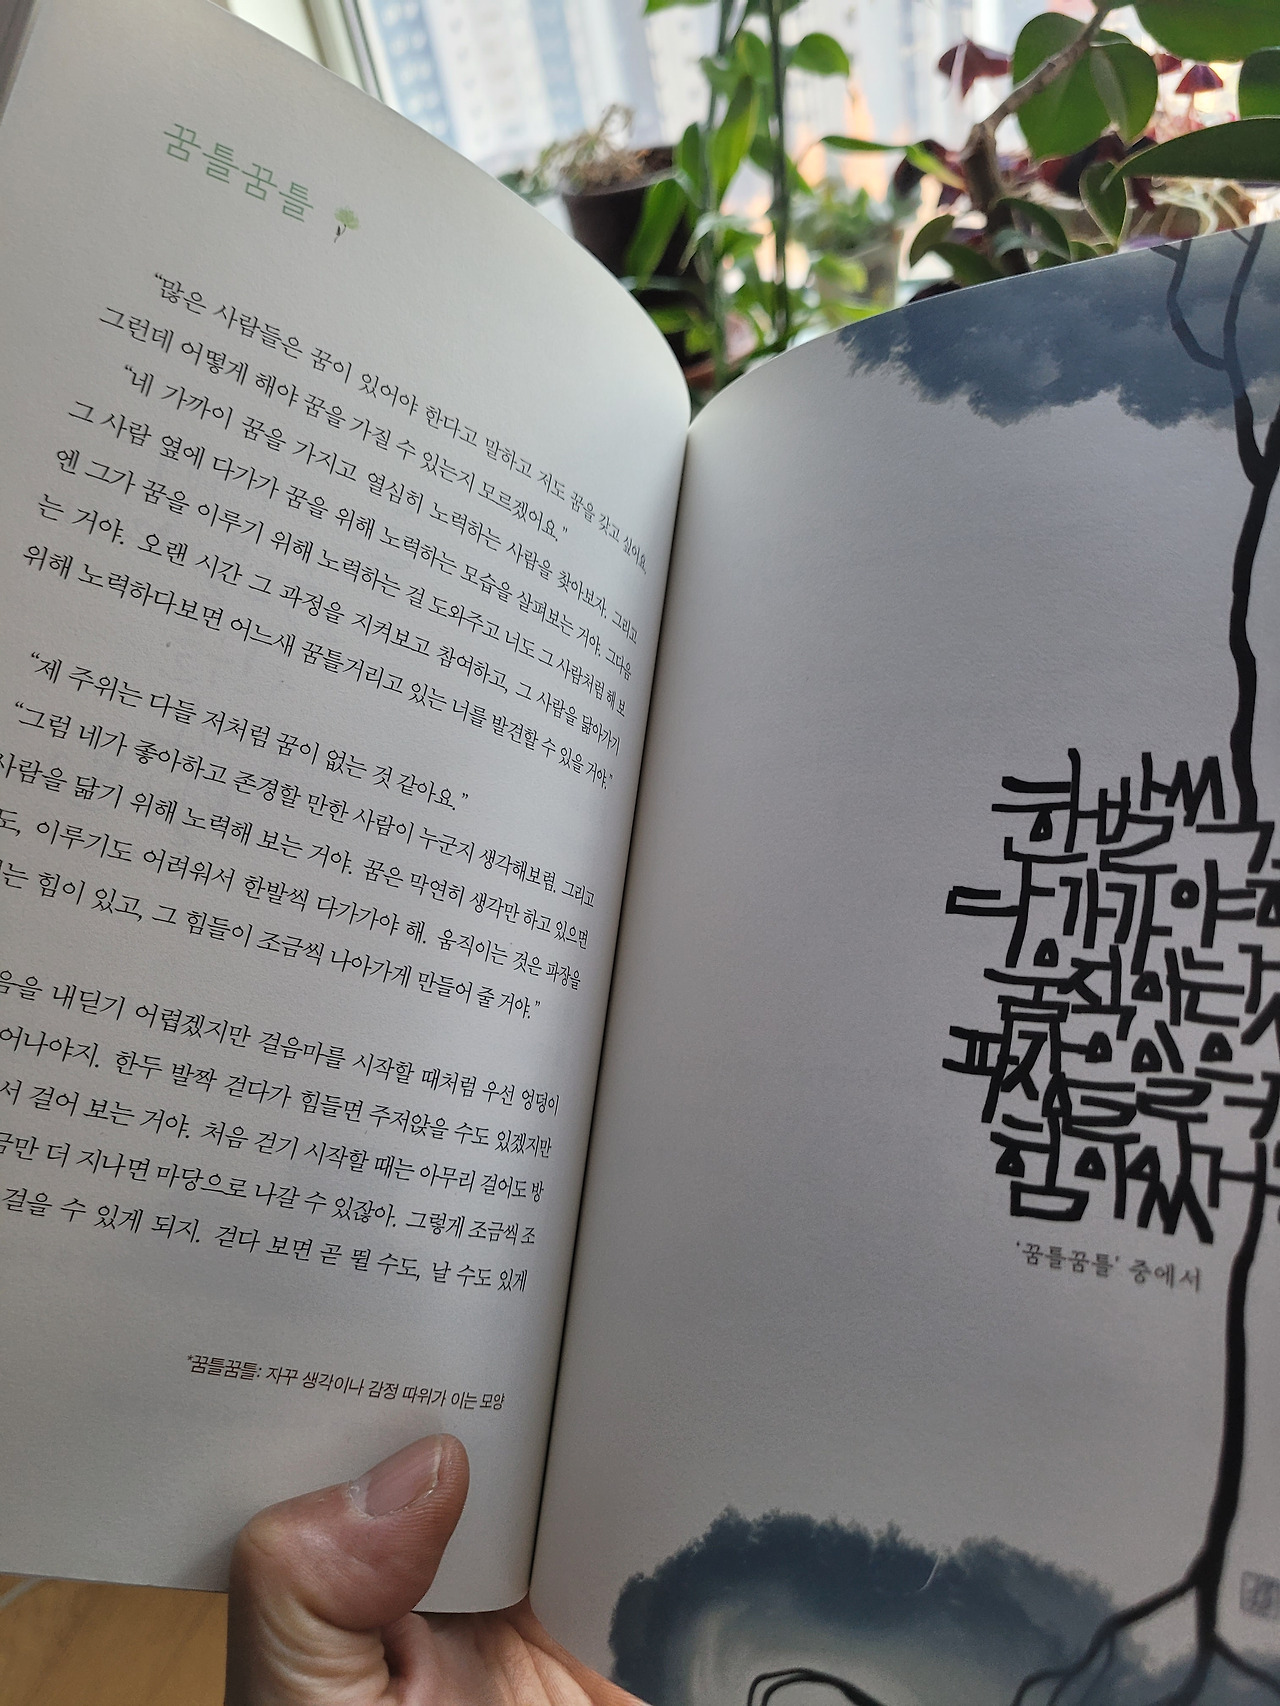 꿈틀꿈틀
“많은 사람들은 꿈이 있어야 한다고 말하고 저도 꿈을 갖고 싶어요.
그런데 어떻게 해야 꿈을 가질 수 있는지 모르겠어요.”
“네 가까이 꿈을 가지고 열심히 노력하는 사람을 찾아보자. 그리고
그 사람 옆에 다가가 꿈을 위해 노력하는 모습을 살펴보는 거야. 그다음
엔 그가 꿈을 이루기 위해 노력하는 걸 도와주고 너도 그 사람처럼 해 보
는 거야. 오랜 시간 그 과정을 지켜보고 참여하고, 그 사람을 닮아가기
위해 노력하다보면 어느새 꿈틀거리고 있는 너를 발견할 수 있을 거야.”
“제 주위는 다들 저처럼 꿈이 없는 것 같아요.”
“그럼 네가 좋아하고 존경할 만한 사람이 누군지 생각해보렴. 그리고
사람을 닮기 위해 노력해 보는 거야. 꿈은 막연히 생각만 하고 있으면
도, 이루기도 어려워서 한발씩 다가가야 해. 움직이는 것은 파장을
는 힘이 있고, 그 힘들이 조금씩 나아가게 만들어 줄 거야.”
음을 내딛기 어렵겠지만 걸음마를 시작할 때처럼 우선 엉덩이
어나야지. 한두 발짝 걷다가 힘들면 주저앉을 수도 있겠지만
서 걸어 보는 거야. 처음 걷기 시작할 때는 아무리 걸어도 방
금만 더 지나면 마당으로 나갈 수 있잖아. 그렇게 조금씩 조
걸을 수 있게 되지. 걷다 보면 곧 뛸 수도, 날 수도 있게
*꿈틀꿈틀: 자꾸 생각이나 감정 따위가 이는 모양
한발씩
나가가야
움직이는
파장을 일으키
힘들
힘이
‘꿈틀꿈틀’ 중에서